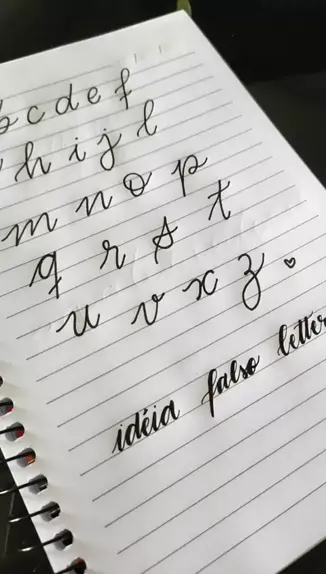 b c d e f
h i j l
m n o p
q r s t
u v x z
idéia falso letter